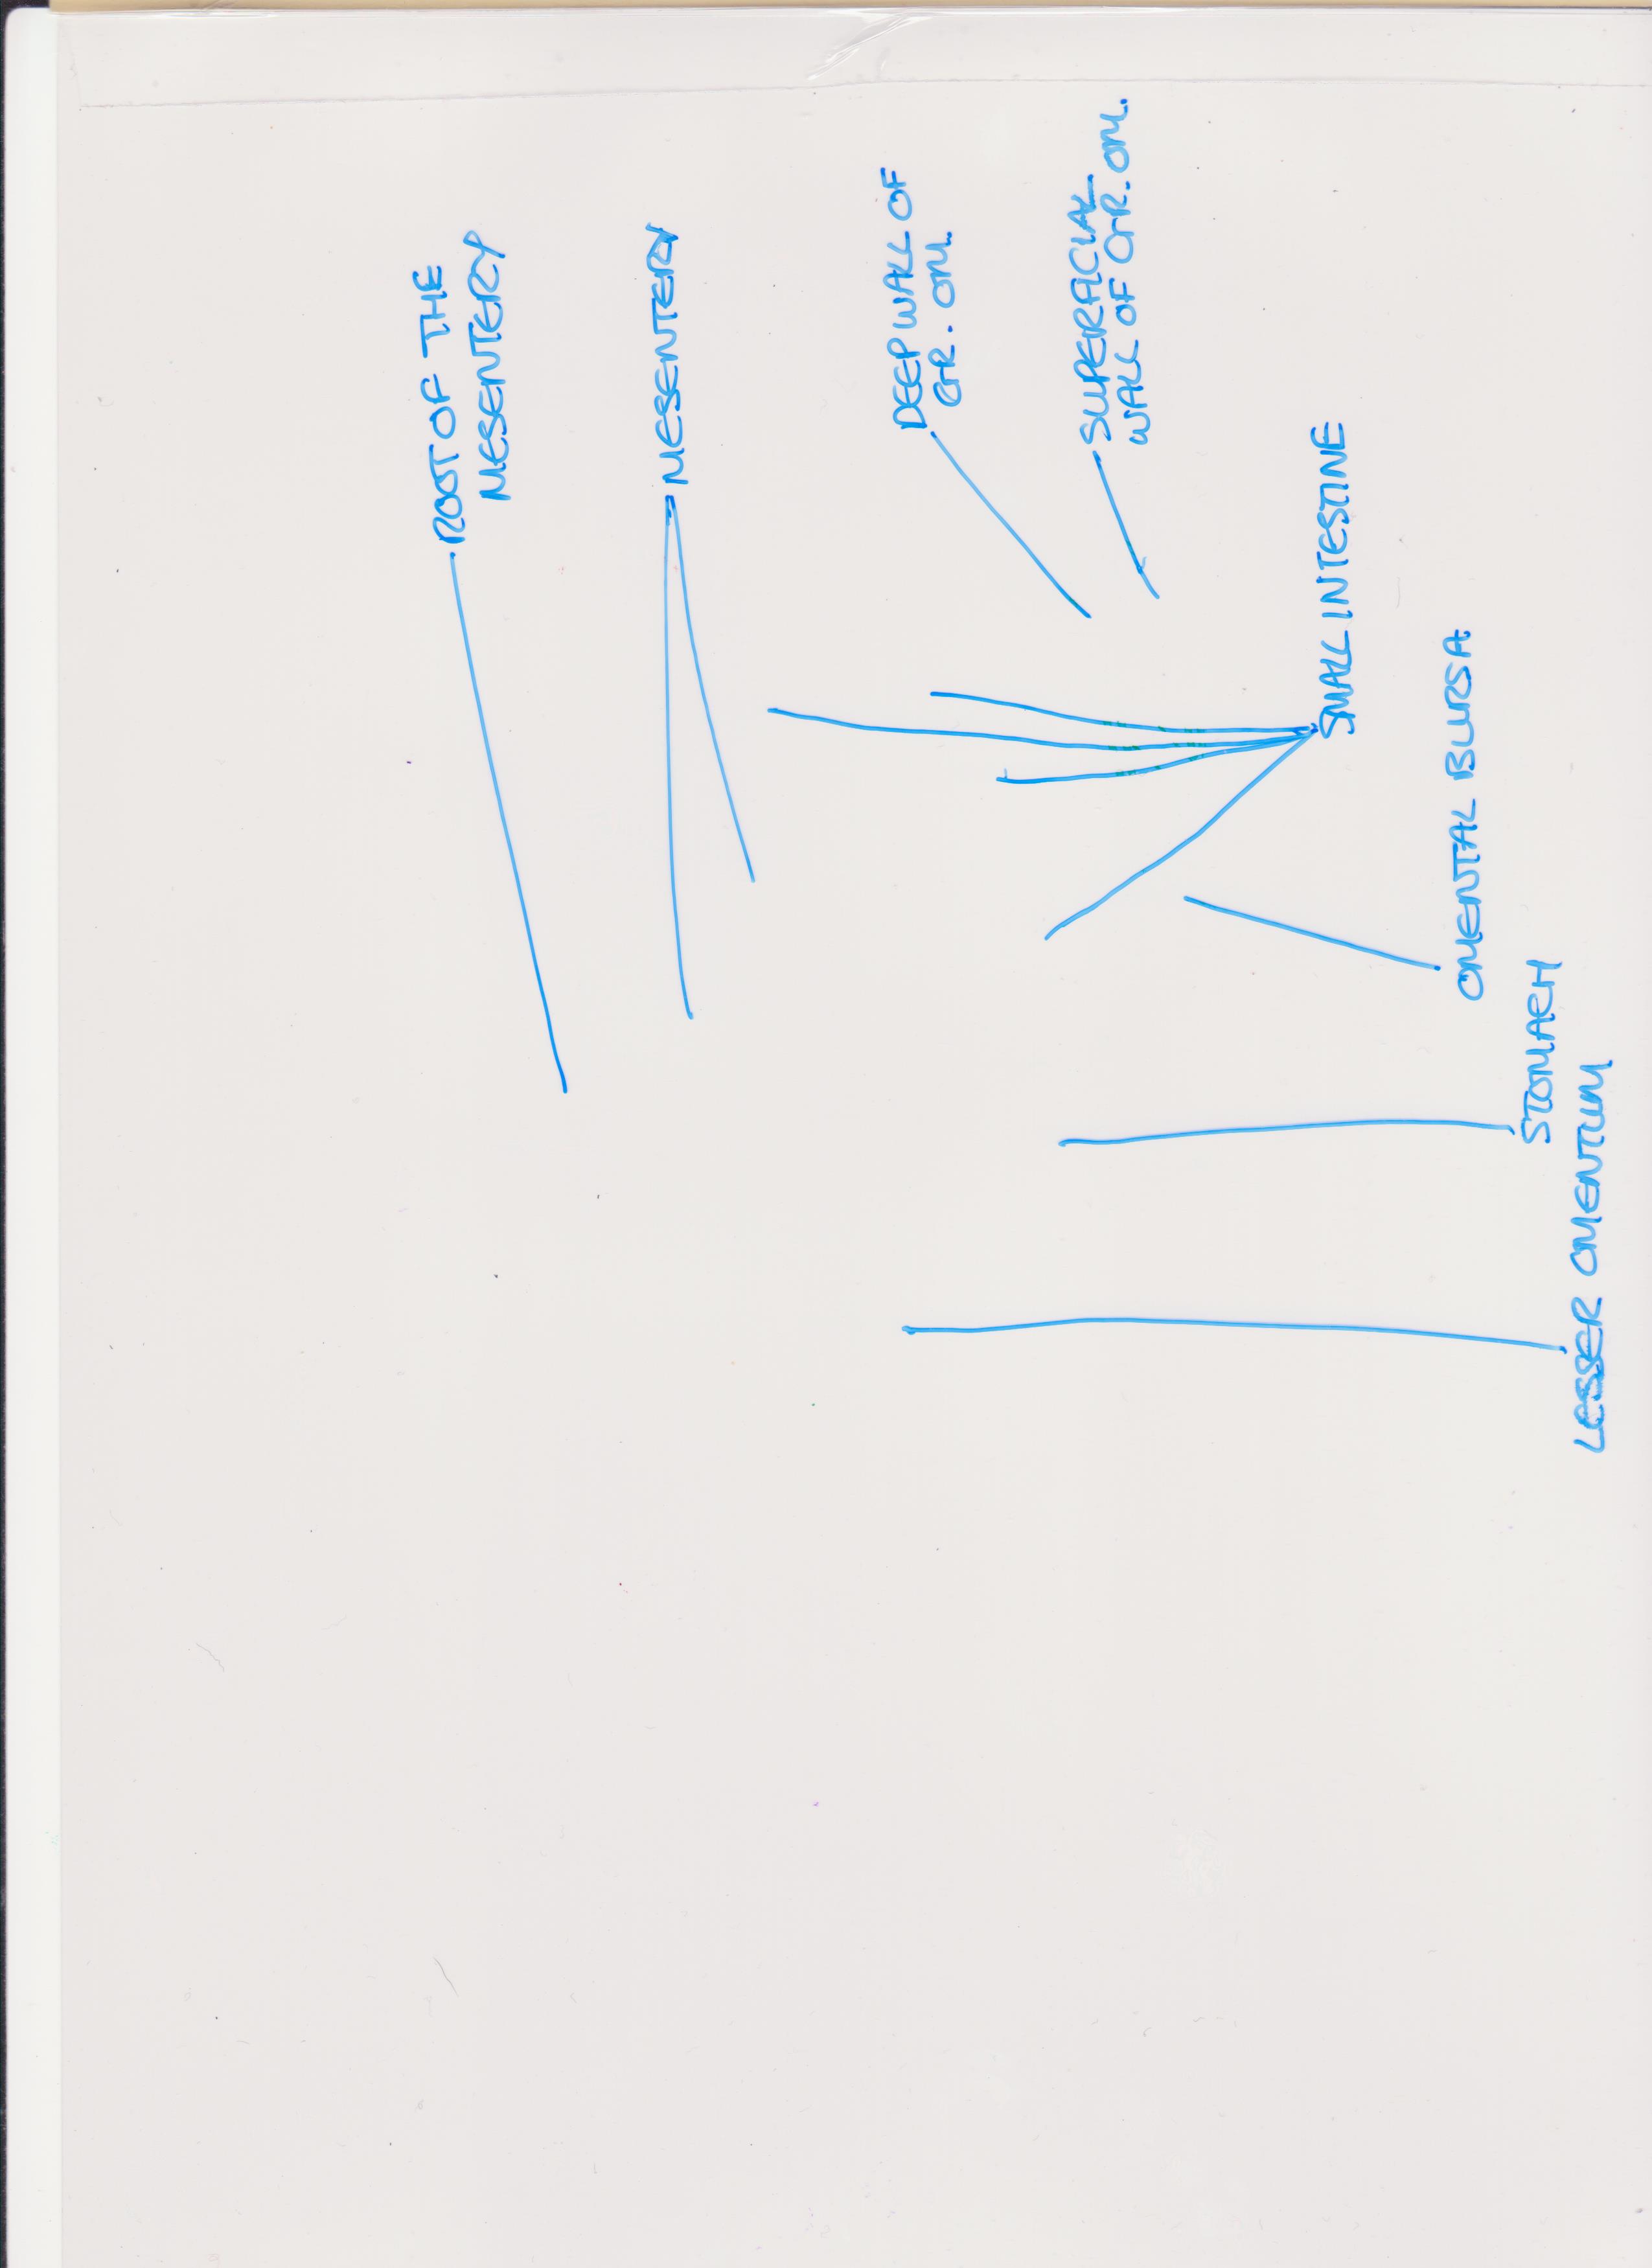 ROOT OF THE
MESENTERY
MESENTERY
DEEP WALL OF
GR. OM.
SUPERFICIAL
WALL OF GR. OM.
SMALL INTESTINE
OMENTAL BURSA
STOMACH
LESSER OMENTUM